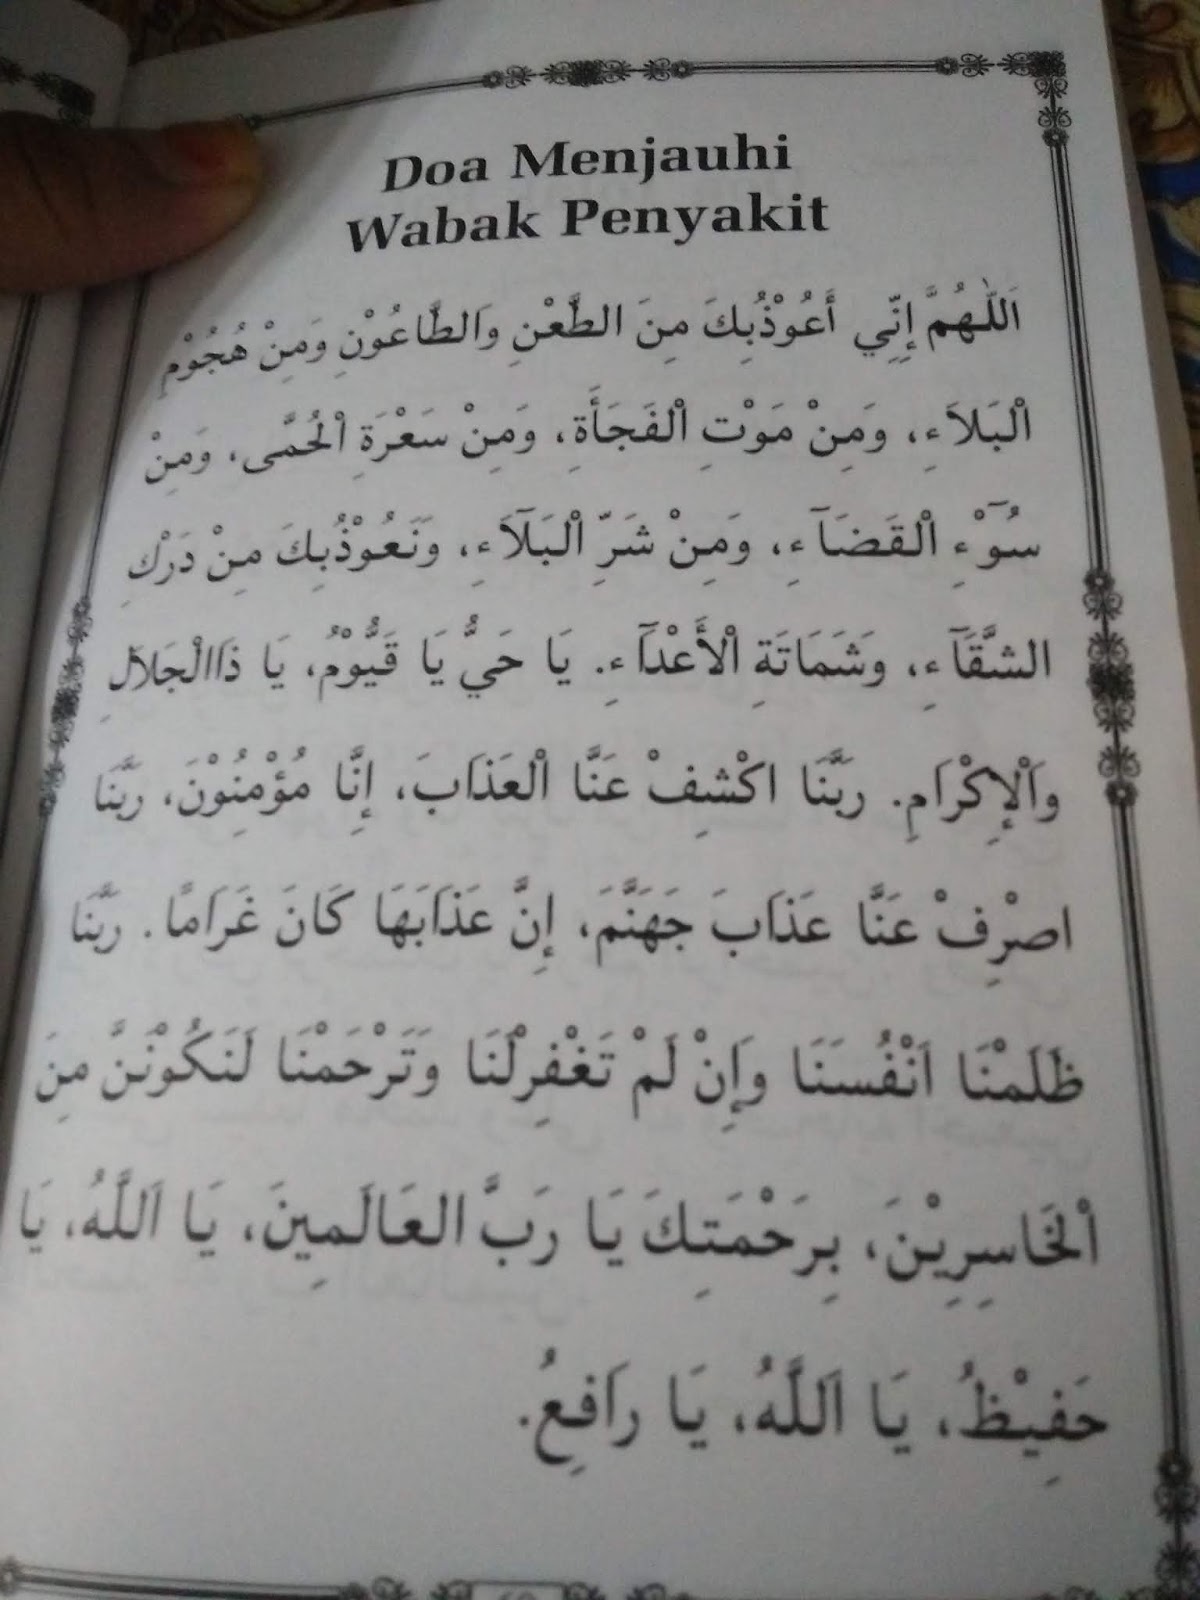 Doa Menjauhi
Wabak Penyakit
اَللّٰهُمَّ إِنِّي أَعُوْذُبِكَ مِنَ الطَّعْنِ وَالطَّاعُوْنِ وَمِنْ هُجُوْمِ
اْلبَلاَءِ، وَمِنْ مَوْتِ اْلفَجَأَةِ، وَمِنْ سَعْرَةِ اْلحُمَّى، وَمِنْ
سُوْٓءِ اْلقَضَآءِ، وَمِنْ شَرِّ اْلبَلَآءِ، وَنَعُوْذُبِكَ مِنْ دَرْكِ
الشَّقَآءِ، وَشَمَاتَةِ اْلأَعْدَآءِ. يَا حَيُّ يَا قَيُّوْمُ، يَا ذَااْلجَلاَلِ
وَاْلإِكْرَامِ. رَبَّنَا اكْشِفْ عَنَّا اْلعَذَابَ، إِنَّا مُؤْمِنُوْنَ، رَبَّنَا
اصْرِفْ عَنَّا عَذَابَ جَهَنَّمَ، إِنَّ عَذَابَهَا كَانَ غَرَامًا. رَبَّنَا
ظَلَمْنَا اَنْفُسَنَا وَإِنْ لَمْ تَغْفِرْلَنَا وَتَرْحَمْنَا لَنَكُوْنَنَّ مِنَ
اْلخَاسِرِيْنَ، بِرَحْمَتِكَ يَا رَبَّ العَالَمِينَ، يَا اَللَّهُ، يَا
حَفِيْظُ، يَا اَللَّهُ، يَا رَافِعُ.